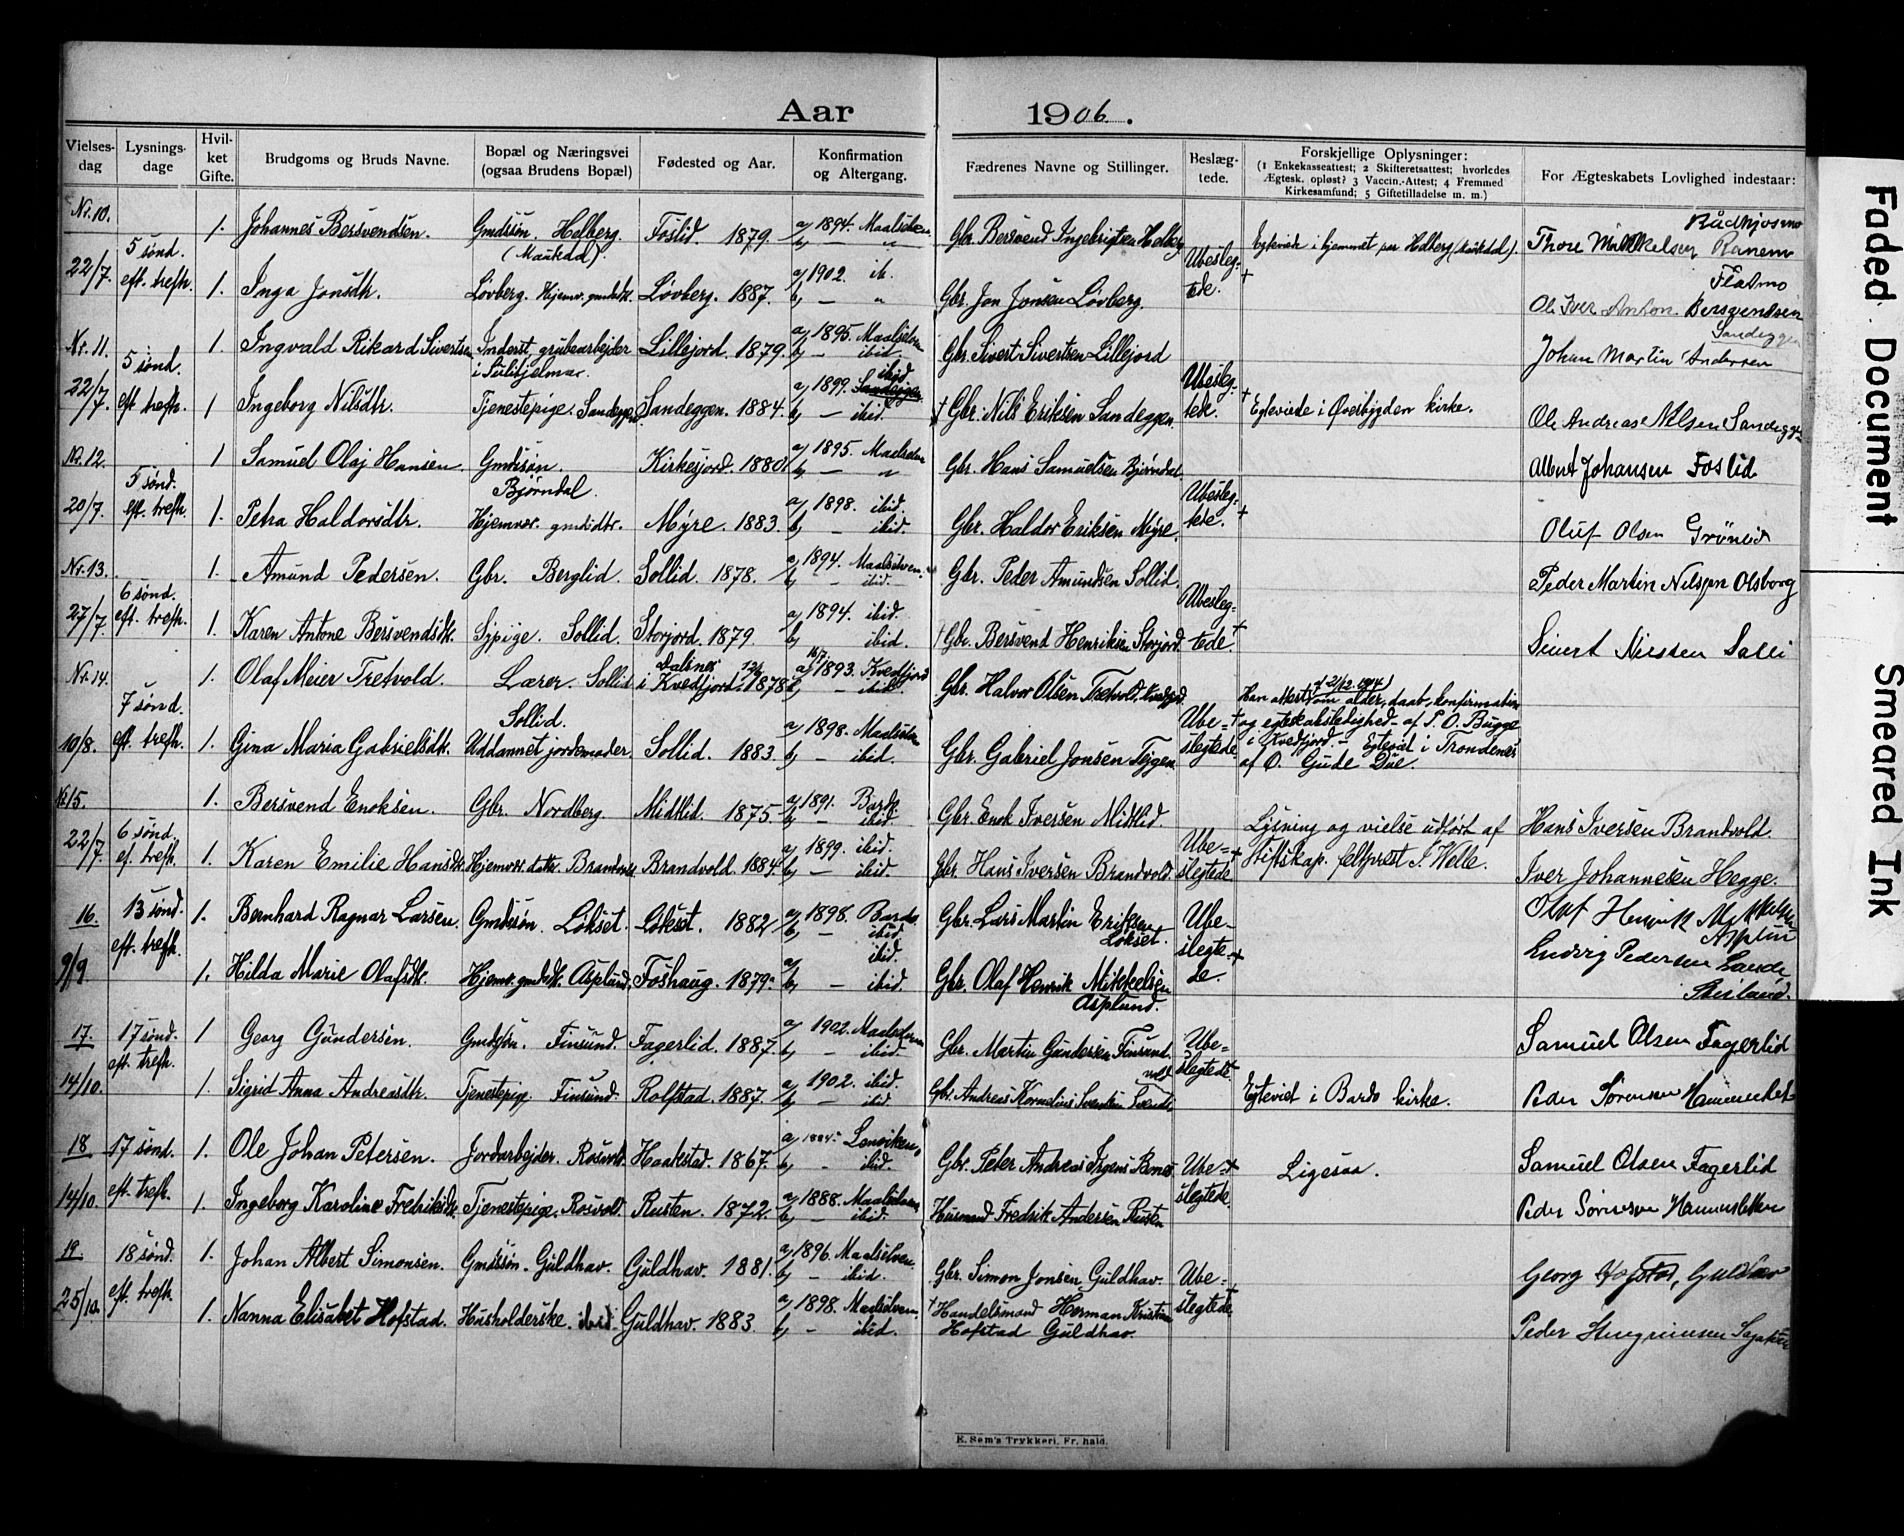 Aar 1906.
Vielses-dag
Lysnings-dage
Hvil-ket Gifte.
Brudgoms og Bruds Navne.
Bopæl og Næringsvei (ogsaa Brudens Bopæl)
Fødested og Aar.
Konfirmation og Altergang.
Fædrenes Navne og Stillinger.
Beslæg-tede.
Forskjellige Oplysninger:
(1 Enkekasseattest; 2 Skifteretsattest; hvorledes Ægtesk. opløst? 3 Vaccin.-Attest; 4 Fremmed Kirkesamfund; 5 Giftetilladelse m. m.)
For Ægteskabets Lovlighed indestaar:
Nr. 10. 1. Johannes Bersvendsen. Gmdssøn. Holberg. (Maukdal). Foslid. 1879. a, 1894. Maalselven b, — " Gbr. Bersvend Ingebrigtsen Holberg Egteviede i hjemmet paa Holberg (Maukdal). Thore Mikkelsen Ranem
22/7. 5 sønd. eft. trefh. 1. Inga Jonsdtr. Løvberg. Hjemv. gmdsdtr. Løvberg. 1887. a, 1902. ib. b, — " Gbr. Jon Jonsen Løvberg. Ubesleg-tede. + Flatmo
Ole Iver Anton Bersvendsen
Nr. 11. 1. Ingvald Rikard Sivertsen Inderst, grubearbejder i Sulitjelma. Lillejord. 1879. a, 1895. Maalselven b, — ibid. Gbr. Sivert Sivertsen Lillejord Johan Martin Andersen Sandeggen
22/7. 5 sønd. eft. trefh. 1 Ingeborg Nilsdtr. Tjenestepige. Sandeggen. Sandeggen. 1884. a, 1899. Sandeggen ibid b, — ibid. † Gbr. Nils Eriksen Sandeggen Ubesleg-tede. + Egteviede i Øverbygden kirke. Ole Andreas Nilsen Sandeggen
Nr. 12. 1 Samuel Olaj Hansen Gmdssøn. Bjørndal. Kirkesjord. 1880. a, 1895. Maalselven b, — " Gbr. Hans Samuelsen Bjørndal Albert Johansen Foslid
20/7. 5 sønd. eft. trefh. 1. Petra Haldorsdtr. Hjemvær. gmdsdtr. Myre. 1883. a, 1898. ibid. b, ibid. Gbr. Haldor Eriksen Myre. Ubesleg-tede. + Oluf Olsen Grønlid
Nr. 13. 1. Amund Pedersen. Gbr. Berglid. Sollid. 1878. a, 1894. Maalselven. b, — ibid. Gbr. Peder Amundsen Sollid. Peder Martin Nilsen Olsborg
27/7. 6 sønd. eft. trefh. 1. Karen Antone Bersvendsdtr. Sypige. Sollid. Storjord. 1879. a, 1894. ibid. b, ibid. † Gbr. Bersvend Henriksen Storjord Ubesleg-tede. + Sivert Nilssen Solli
Nr. 14. 1. Olaf Meier Tretvold. Lærer. Sollid i Kvedfjord. 1878. a, 1893. Kvedfjord b, — ibid. Gbr. Halvor Olsen Tretvold. Kvedfjord Han attest om alder, daab, konfirmation og egteskabsledighed – af P. O. Bugge i Kvedfjord. – Egteviet i Trondenes af O. Gude Due.
10/8. 7 sønd. eft. trefh. 1. Gina Maria Gabrielsdtr. Sollid. Uddannet jordemoder. Sollid. 1883. a, 1898. Maalselven b, — ibid. Gbr. Gabriel Jonsen Ube-slegtede +
Nr. 15. 1. Bersvend Enoksen. Gbr. Nordberg. Midtlid. 1875. a, 1891. Bardo. b, — ibid. Gbr. Enok Iversen Midtlid Lysning og vielse udført af Stiftskap. feltprest J. Welle. Hans Iversen Brandvold.
22/7. 6 sønd. ef. trefh. 1. Karen Emilie Hansdtr. Hjemvær. datter. Brandvold. 1884. a, 1899. ibid. b, — ibid. Gbr. Hans Iversen Brandvold. Ube-slegtede + Iver Johannesen Hegge.
16. 13 sønd. eft. trefh. 1. Bernhard Ragnar Larsen. Gmdssøn. Løkset. Løkset. 1882 a, 1898. Bardo b, — ibid. Gbr. Lars Martin Eriksen Løkset. Ube-slegte-de. + Olaf Henrik Mikkelsen Asplun
9/9. 1. Hilda Marie Olafsdtr. Hjemv. gmdsdtr. Asplund. Foshaug. 1879. a, ibid. b, — ibid. Gbr. Olaf Henrik Mikkelsen Asplund. Ludvig Pedersen
17. 17 sønd. eft. trefh. 1 Georg Gundersen. Gmdssøn. Finsund. Fagerlid. 1887. a, 1902. Maalselven b, — ibid. Gbr. Martin Gundersen Finsund. Ube-slegtede. Samuel Olsen Fagerlid
14/10. 1. Sigrid Anna Andreasdtr. Tjenestepig. Finsund. Rolfstad. 1887. a, 1902. ibid. b, — ibid. Gbr. Andreas Kornelius Egteviet i Bardo kirke. Peder Sørensen
18 17 sønd. 1. Ole Johan Petersen. Jordarbejder. Rosvold. Haakstad. 1867. a, Lenviken. b, — ibid. Gbr. Peter Andreas Ube-slegtede. + Ligesaa. Samuel Olsen Fagerlid
14/10. eft. trefh. 1. Ingeborg Karoline Fredriksdtr. Tjenestepige. Rosvold. Rusten. 1872. a, 1888. Maalselven b, — ibid. Husmand Fredrik Andersen Rusten Peder Sørensen
19. 18 sønd. 1. Johan Albert Simonsen. Gmdssøn. Guldhav. Guldhav. 1881. a, 1896. Maalselven. b, — ibid. Gbr. Simon Jonsen Guldhav. Ube-slegtede + Georg Hofstad, Guldhav
25/10. eft. trefh. 1. Nanna Elisabet Hofstad. Husholderske. ibid. Guldhav. 1883. a, 1898. Maalselven. b, — ibid. † Handelsmand Herman Kristian Hofstad Guldhav. Peder
E. Sem's Trykkeri, Fr.hald.
Faded Document
Smeared Ink